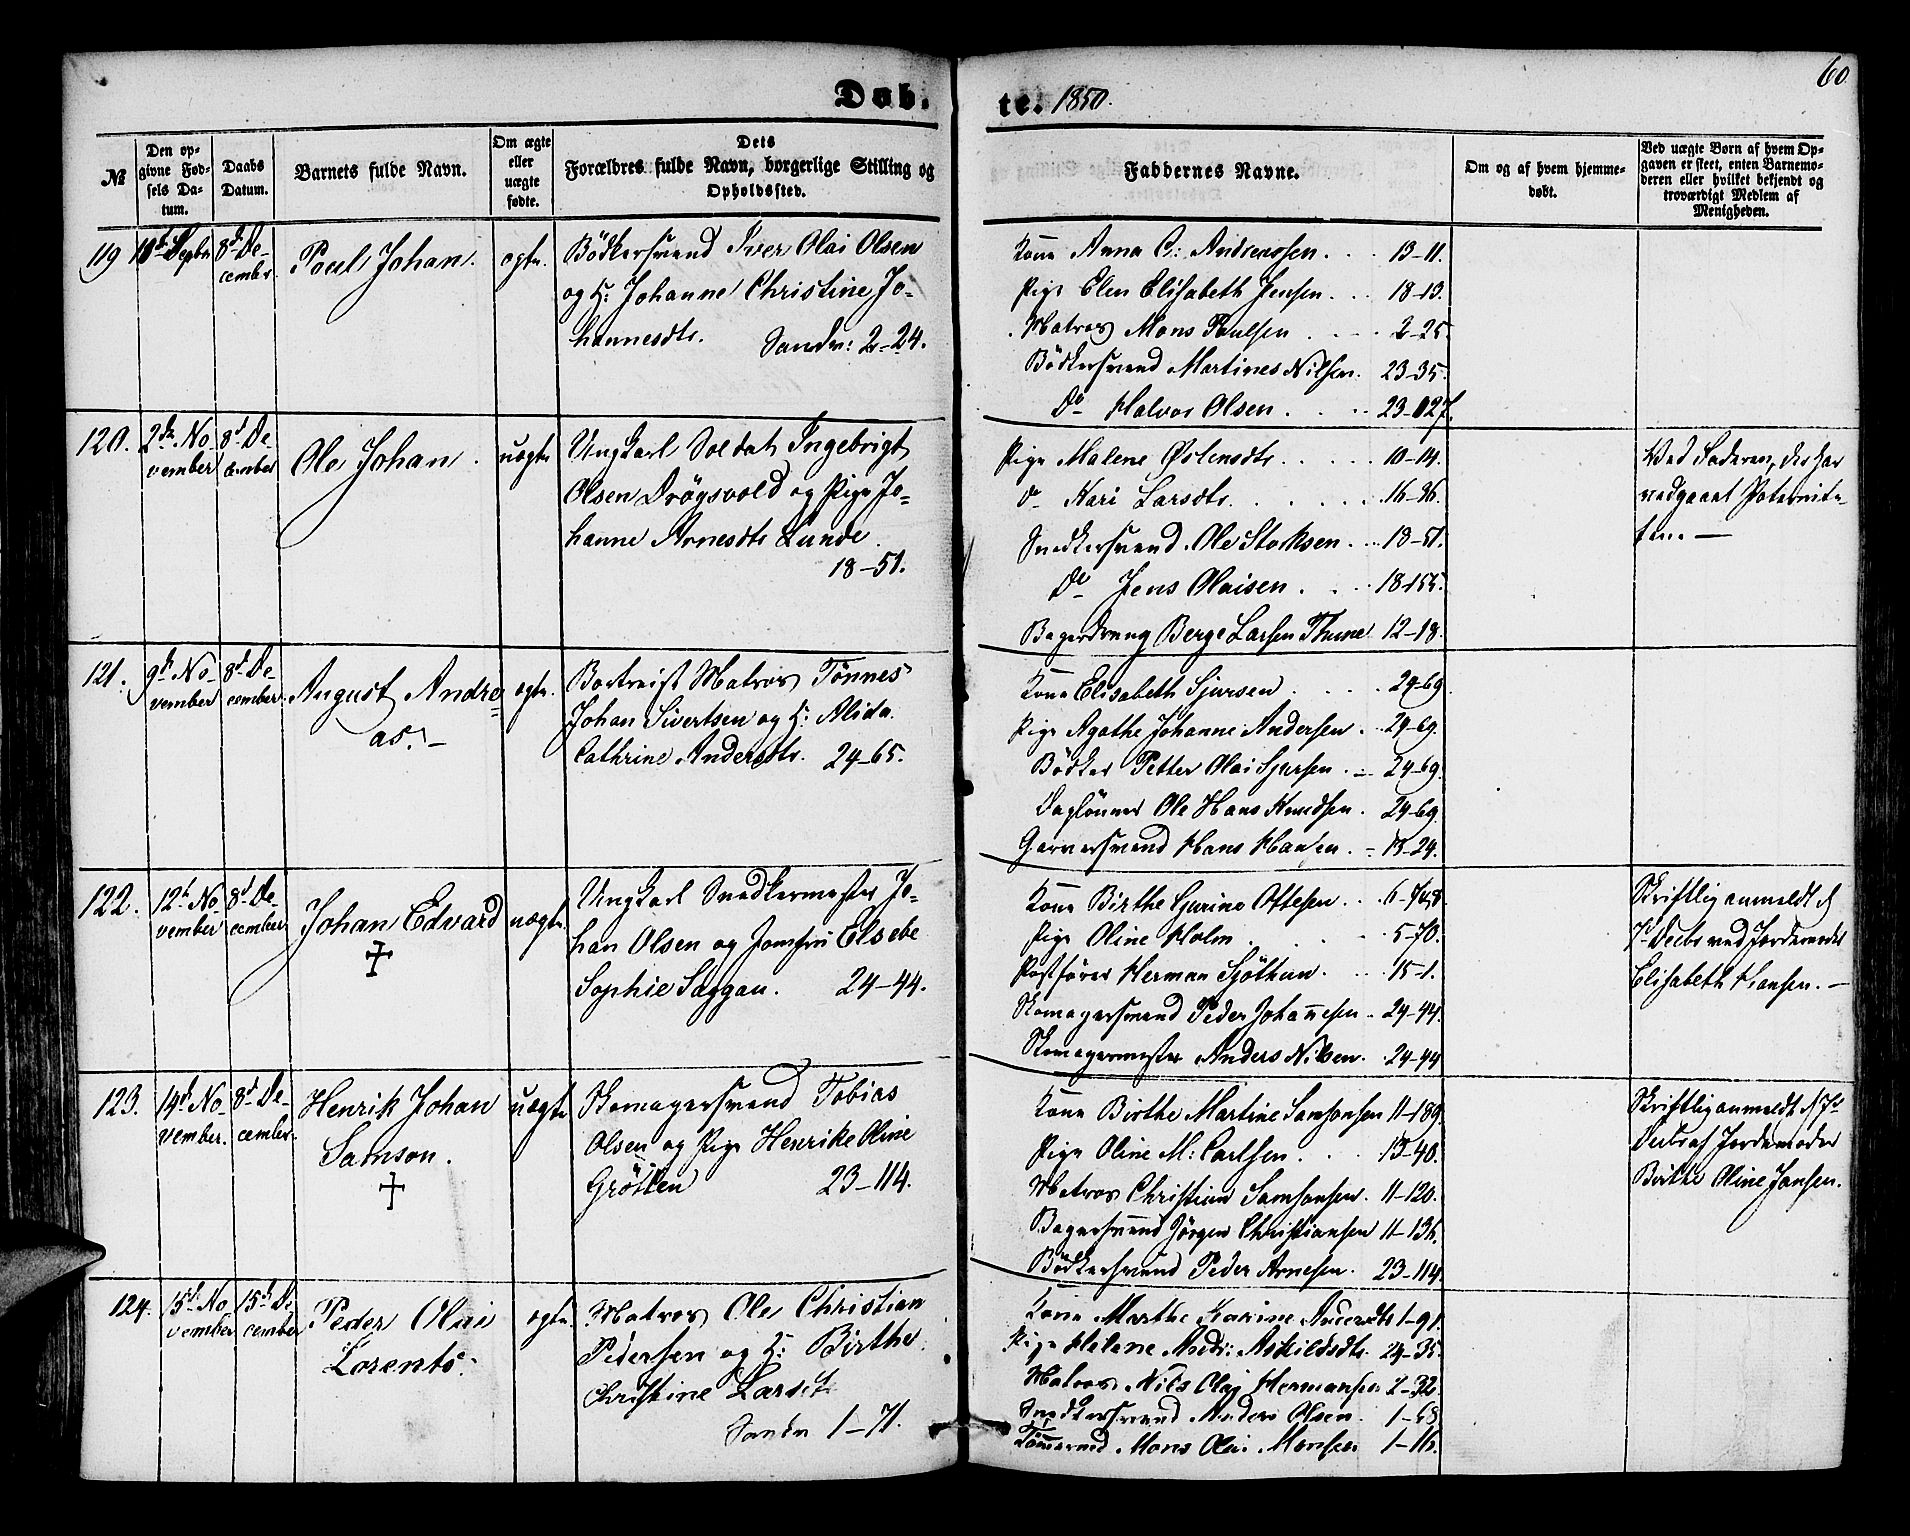 60
Døb.
te. 1850.
№
Den op-
givne Fød-
sels Da-
tum.
Daabs
Datum.
Barnets fulde Navn.
Om ægte
eller
uægte
fødte.
Dets
Forældres fulde Navn, borgerlige Stilling og
Opholdssted.
Faddernes Navne.
Om og af hvem hjemme-
døbt.
Ved uægte Børn af hvem Op-
gaven er skeet, enten Barnemo-
deren eller hvilket bekjendt og
troværdigt Medlem af
Menigheden.
119
8de De-
cember.
Poul Johan.
ægte.
Bödkersvend Iver Olai Olsen
og H: Johanne Christine Jo-
hannesdtr. Sandv: 2-24.
Kone Anna C: Andreassen. 13-11.
Pige Elen Elisabeth Jensen. 18-13.
Matros Mons Paulsen 2-25.
Bödkersvend Martines Nilsen. 23-35.
Do Halvor Olsen.
120.
2den No-
vember
8d De-
cember
Ole Johan.
uægte
Ungkarl Soldat Ingebrigt
Olsen Dröysvold og Pige Jo-
hanne Arnesdtr Lunde.
18-51.
Pige Malene Östensdtr. 10-14.
Do Kari Larsdtr. 16-36.
Snedkersvend Ole Stoksen. 18-51.
Do Jens Olaisen. 18-155.
Bagerdreng Berge Larsen Thune 12-18.
Ved Faderen, der har
vedgaaet Paternite-
ten. —
121.
9d No-
vember
8d De-
cember.
August Andre-
as. —
ægte.
Bortreist Matros Tönnes
Johan Sivertsen og H: Alida
Cathrine Andersdtr. 24-65.
Kone Elisabeth Sjursen 24-69.
Pige Agathe Johanne Andersen. 24-69.
Bödker Petter Olai Sjursen. 24-69.
Daglönner Ole Hans Knudsen. 24-69.
Garversvend Hans Hansen. 13-24.
122.
12t No-
vember
8d De-
cember
Johan Edvard
uægte.
Ungkarl Snedkermester Jo-
han Olsen og Jomfru Elsebe
Sophie Saggau. 24-44.
Kone Birthe Gurine Ottesen.
Pige Oline Holm. 5-70.
Postförer Herman Sjöthun. 15-1.
Skomagersvend Peder Johannesen 24-44.
Skomagermester Anders Nilsen. 24-44
Skriftlig anmeldt d
7d Decbr ved Jordemoder
Elisabeth Hansen. —
123.
14d No-
vember.
8d De-
cember.
Henrik Johan
Samson.
uægte
Skomagersvend Tobias
Olsen og Pige Henrike Oline
Grötten 23-114.
Kone Birthe Martine Samsonsen 11-189.
Pige Oline M: Carlsen. 13-40.
Matros Christian Samsonsen. 11-120.
Bagersvend Jörgen Christiansen 11-136.
Bödkersvend Peder Arnesen. 23-114.
Skriftlig anmeldt d 7de
Decbr af Jordemoder
Birthe Oline Jansen.
124.
15d No-
vember
15d De-
cember
Peder Olai
Lorents.
ægte.
Matros Ole Christian
Pedersen og H: Birthe
Christine Larsdt
Sandv 1-71.
Kone Marthe Karine Andersdtr 1-91.
Pige Helene Andr: Askildsdtr. 24-35.
Matros Nils Olaj Hermansen 2-32.
Snedkersvend Anders Olsen. 1-68
Tömmermd Mons Olai Monsen 1-16.